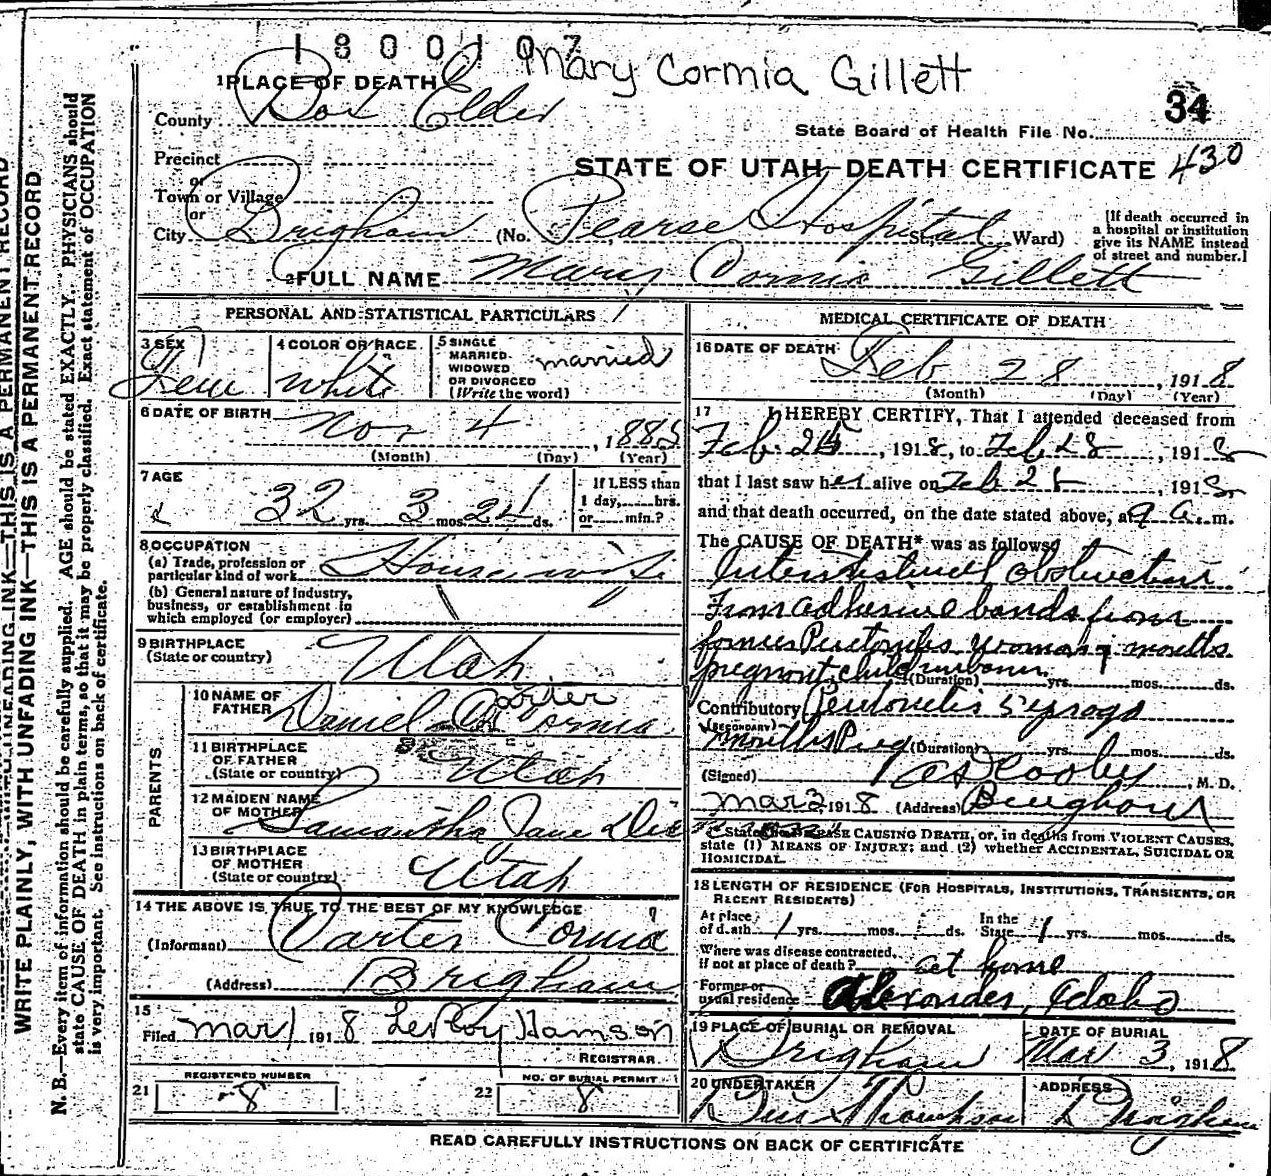 1800107
Mary Cormia Gillett
1 PLACE OF DEATH
County Box Elder
34
State Board of Health File No.
Precinct
or
STATE OF UTAH—DEATH CERTIFICATE 430
Town or Village
or
City Brigham (No. Pearse Hospital St., Ward)
[If death occurred in
a hospital or institution
give its NAME instead
of street and number.]
2 FULL NAME Mary Cormia Gillett
PERSONAL AND STATISTICAL PARTICULARS
3 SEX
Fem
4 COLOR OR RACE
White
5 SINGLE
MARRIED
WIDOWED
OR DIVORCED
(Write the word)
married
6 DATE OF BIRTH
Nov 4, 1885
(Month) (Day) (Year)
7 AGE
32 yrs. 3 mos. 24 ds.
If LESS than
1 day, hrs.
or min.?
8 OCCUPATION
(a) Trade, profession or
particular kind of work Housewife
(b) General nature of industry,
business, or establishment in
which employed (or employer)
9 BIRTHPLACE
(State or country) Utah
PARENTS
10 NAME OF
FATHER Daniel Carter Cormia
11 BIRTHPLACE
OF FATHER
(State or country) Utah
12 MAIDEN NAME
OF MOTHER Samantha Jane
13 BIRTHPLACE
OF MOTHER
(State or country) Utah
14 THE ABOVE IS TRUE TO THE BEST OF MY KNOWLEDGE
(Informant) Carter Cormia
(Address) Brigham
15
Filed Mar 1 1918 LeRoy
REGISTRAR.
REGISTERED NUMBER
21 8
NO. OF BURIAL PERMIT
22 8
MEDICAL CERTIFICATE OF DEATH
16 DATE OF DEATH
Feb 28, 1918
(Month) (Day) (Year)
17 I HEREBY CERTIFY, That I attended deceased from
Feb, 1918, to Feb 28, 1918
that I last saw her alive on Feb 28, 1918
and that death occurred, on the date stated above, at 9 a. m.
The CAUSE OF DEATH* was as follows:
obstruction
From adhesive bands from
former Peritonitis woman 7 months
pregnant child unborn
(Duration) yrs. mos. ds.
Contributory Peritonitis 5 yrs ago
(SECONDARY)
7 months Preg (Duration) yrs. mos. ds.
(Signed) M. D.
Mar 2, 1918 (Address) Brigham
* State the DISEASE CAUSING DEATH, or, in deaths from VIOLENT CAUSES,
state (1) MEANS OF INJURY; and (2) whether ACCIDENTAL, SUICIDAL OR
HOMICIDAL.
18 LENGTH OF RESIDENCE (FOR HOSPITALS, INSTITUTIONS, TRANSIENTS, OR
RECENT RESIDENTS)
At place
of death 1 yrs. mos. ds.
In the
State 1 yrs. mos. ds.
Where was disease contracted,
if not at place of death? at home
Former or
usual residence Alexander, Idaho
19 PLACE OF BURIAL OR REMOVAL
Brigham
DATE OF BURIAL
Mar 3, 1918
20 UNDERTAKER
Thompson
ADDRESS
Brigham
READ CAREFULLY INSTRUCTIONS ON BACK OF CERTIFICATE
WRITE PLAINLY, WITH UNFADING INK—THIS IS A PERMANENT RECORD
N. B.—Every item of information should be carefully supplied. AGE should be stated EXACTLY. PHYSICIANS should
state CAUSE OF DEATH in plain terms, so that it may be properly classified. Exact statement of OCCUPATION
is very important. See instructions on back of certificate.